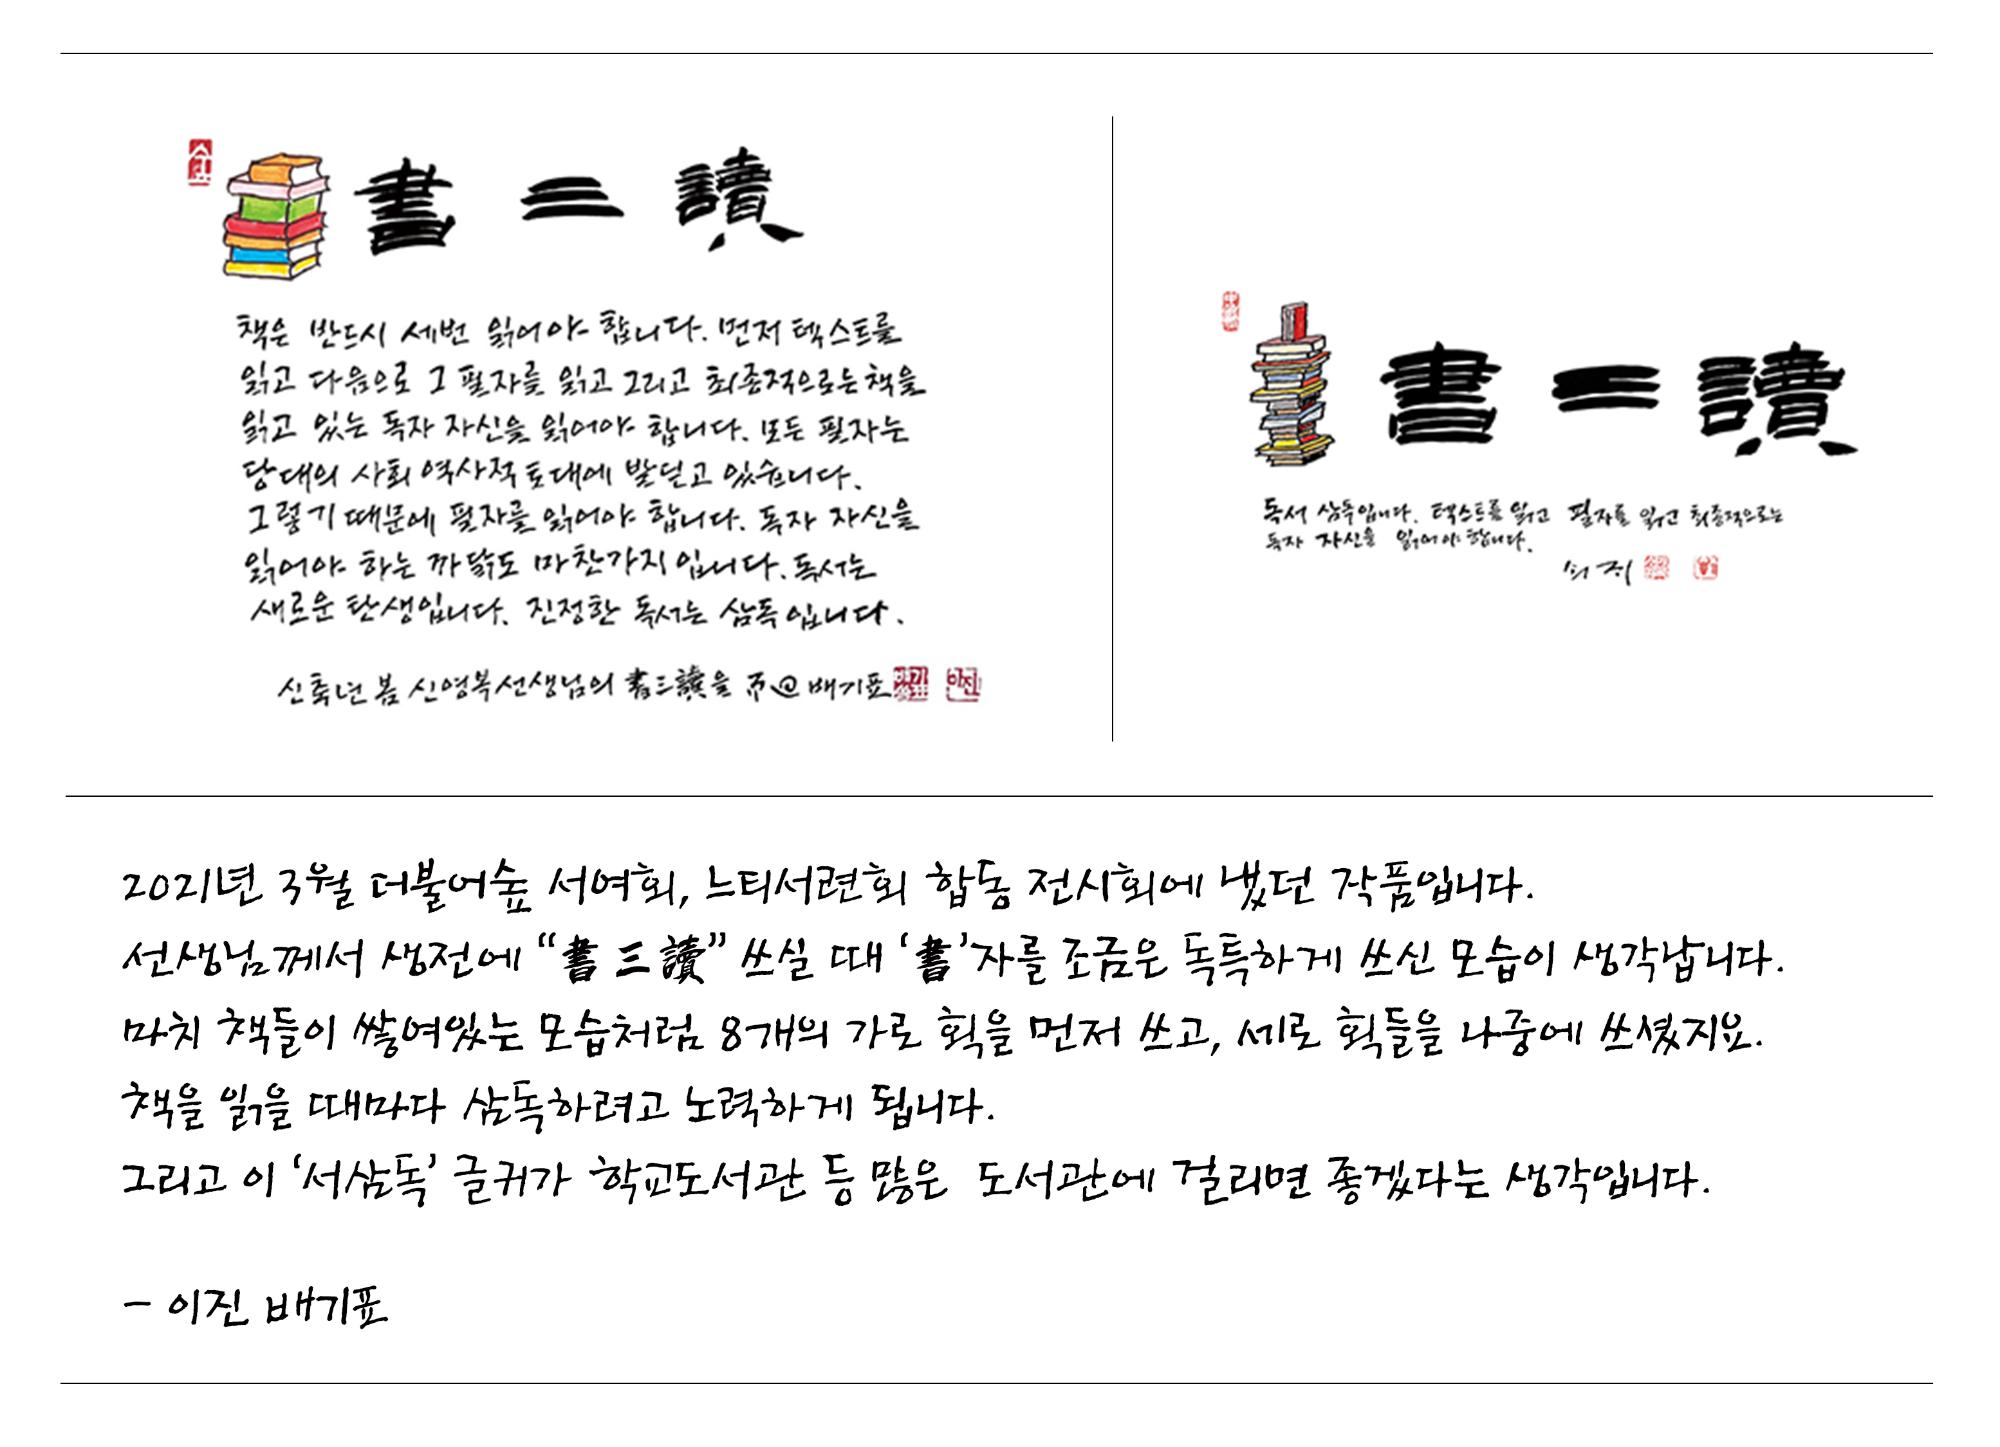 書三讀
책은 반드시 세번 읽어야 합니다. 먼저 텍스트를
읽고 다음으로 그 필자를 읽고 그리고 최종적으로는 책을
읽고 있는 독자 자신을 읽어야 합니다. 모든 필자는
당대의 사회 역사적 토대에 발딛고 있습니다.
그렇기 때문에 필자를 읽어야 합니다. 독자 자신을
읽어야 하는 까닭도 마찬가지입니다. 독서는
새로운 탄생입니다. 진정한 독서는 삼독입니다.
신축년 봄 신영복선생님의 書三讀을 배기표
이진
書三讀
독서 삼독입니다. 텍스트를 읽고 필자를 읽고 최종적으로는
독자 자신을 읽어야 합니다.
2021년 3월 더불어숲 서여회, 느티서련회 합동 전시회에 냈던 작품입니다.
선생님께서 생전에 “書 三 讀” 쓰실 때 ‘書’자를 조금은 독특하게 쓰신 모습이 생각납니다.
마치 책들이 쌓여있는 모습처럼 8개의 가로 획을 먼저 쓰고, 세로 획들을 나중에 쓰셨지요.
책을 읽을 때마다 삼독하려고 노력하게 됩니다.
그리고 이 ‘서삼독’ 글귀가 학교도서관 등 많은 도서관에 걸리면 좋겠다는 생각입니다.
- 이진 배기표